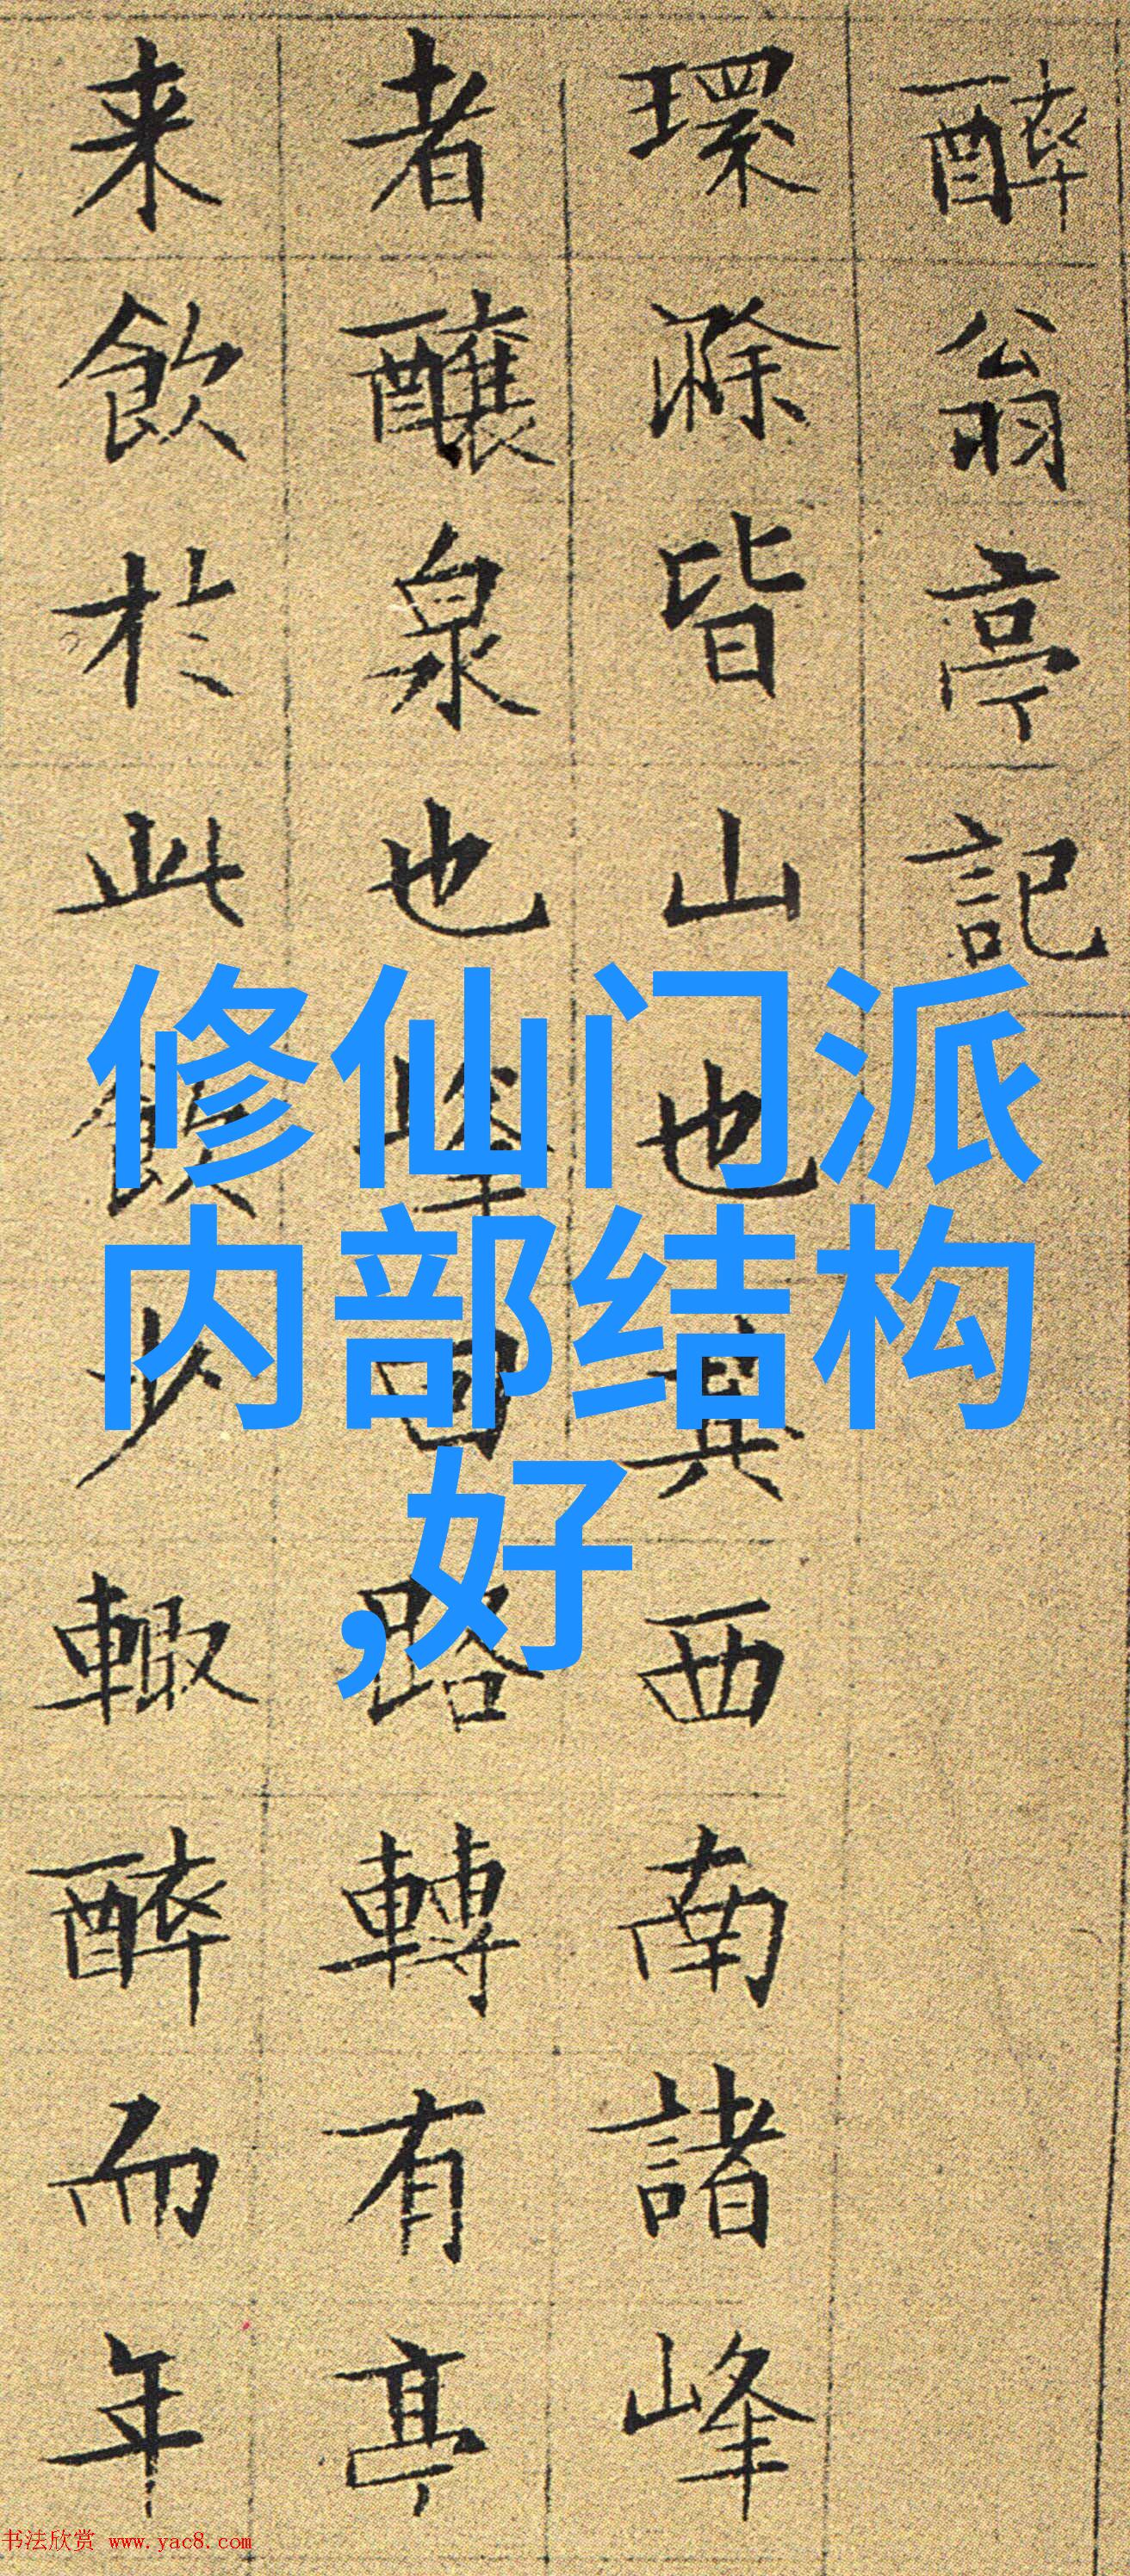 醉翁亭記
環滁皆山也其西南諸峰
者釀泉也峰回路轉有亭
来飲於此飲少輙醉而年
修仙门派
内部结构
,好
书法欣赏 www.yac8.com